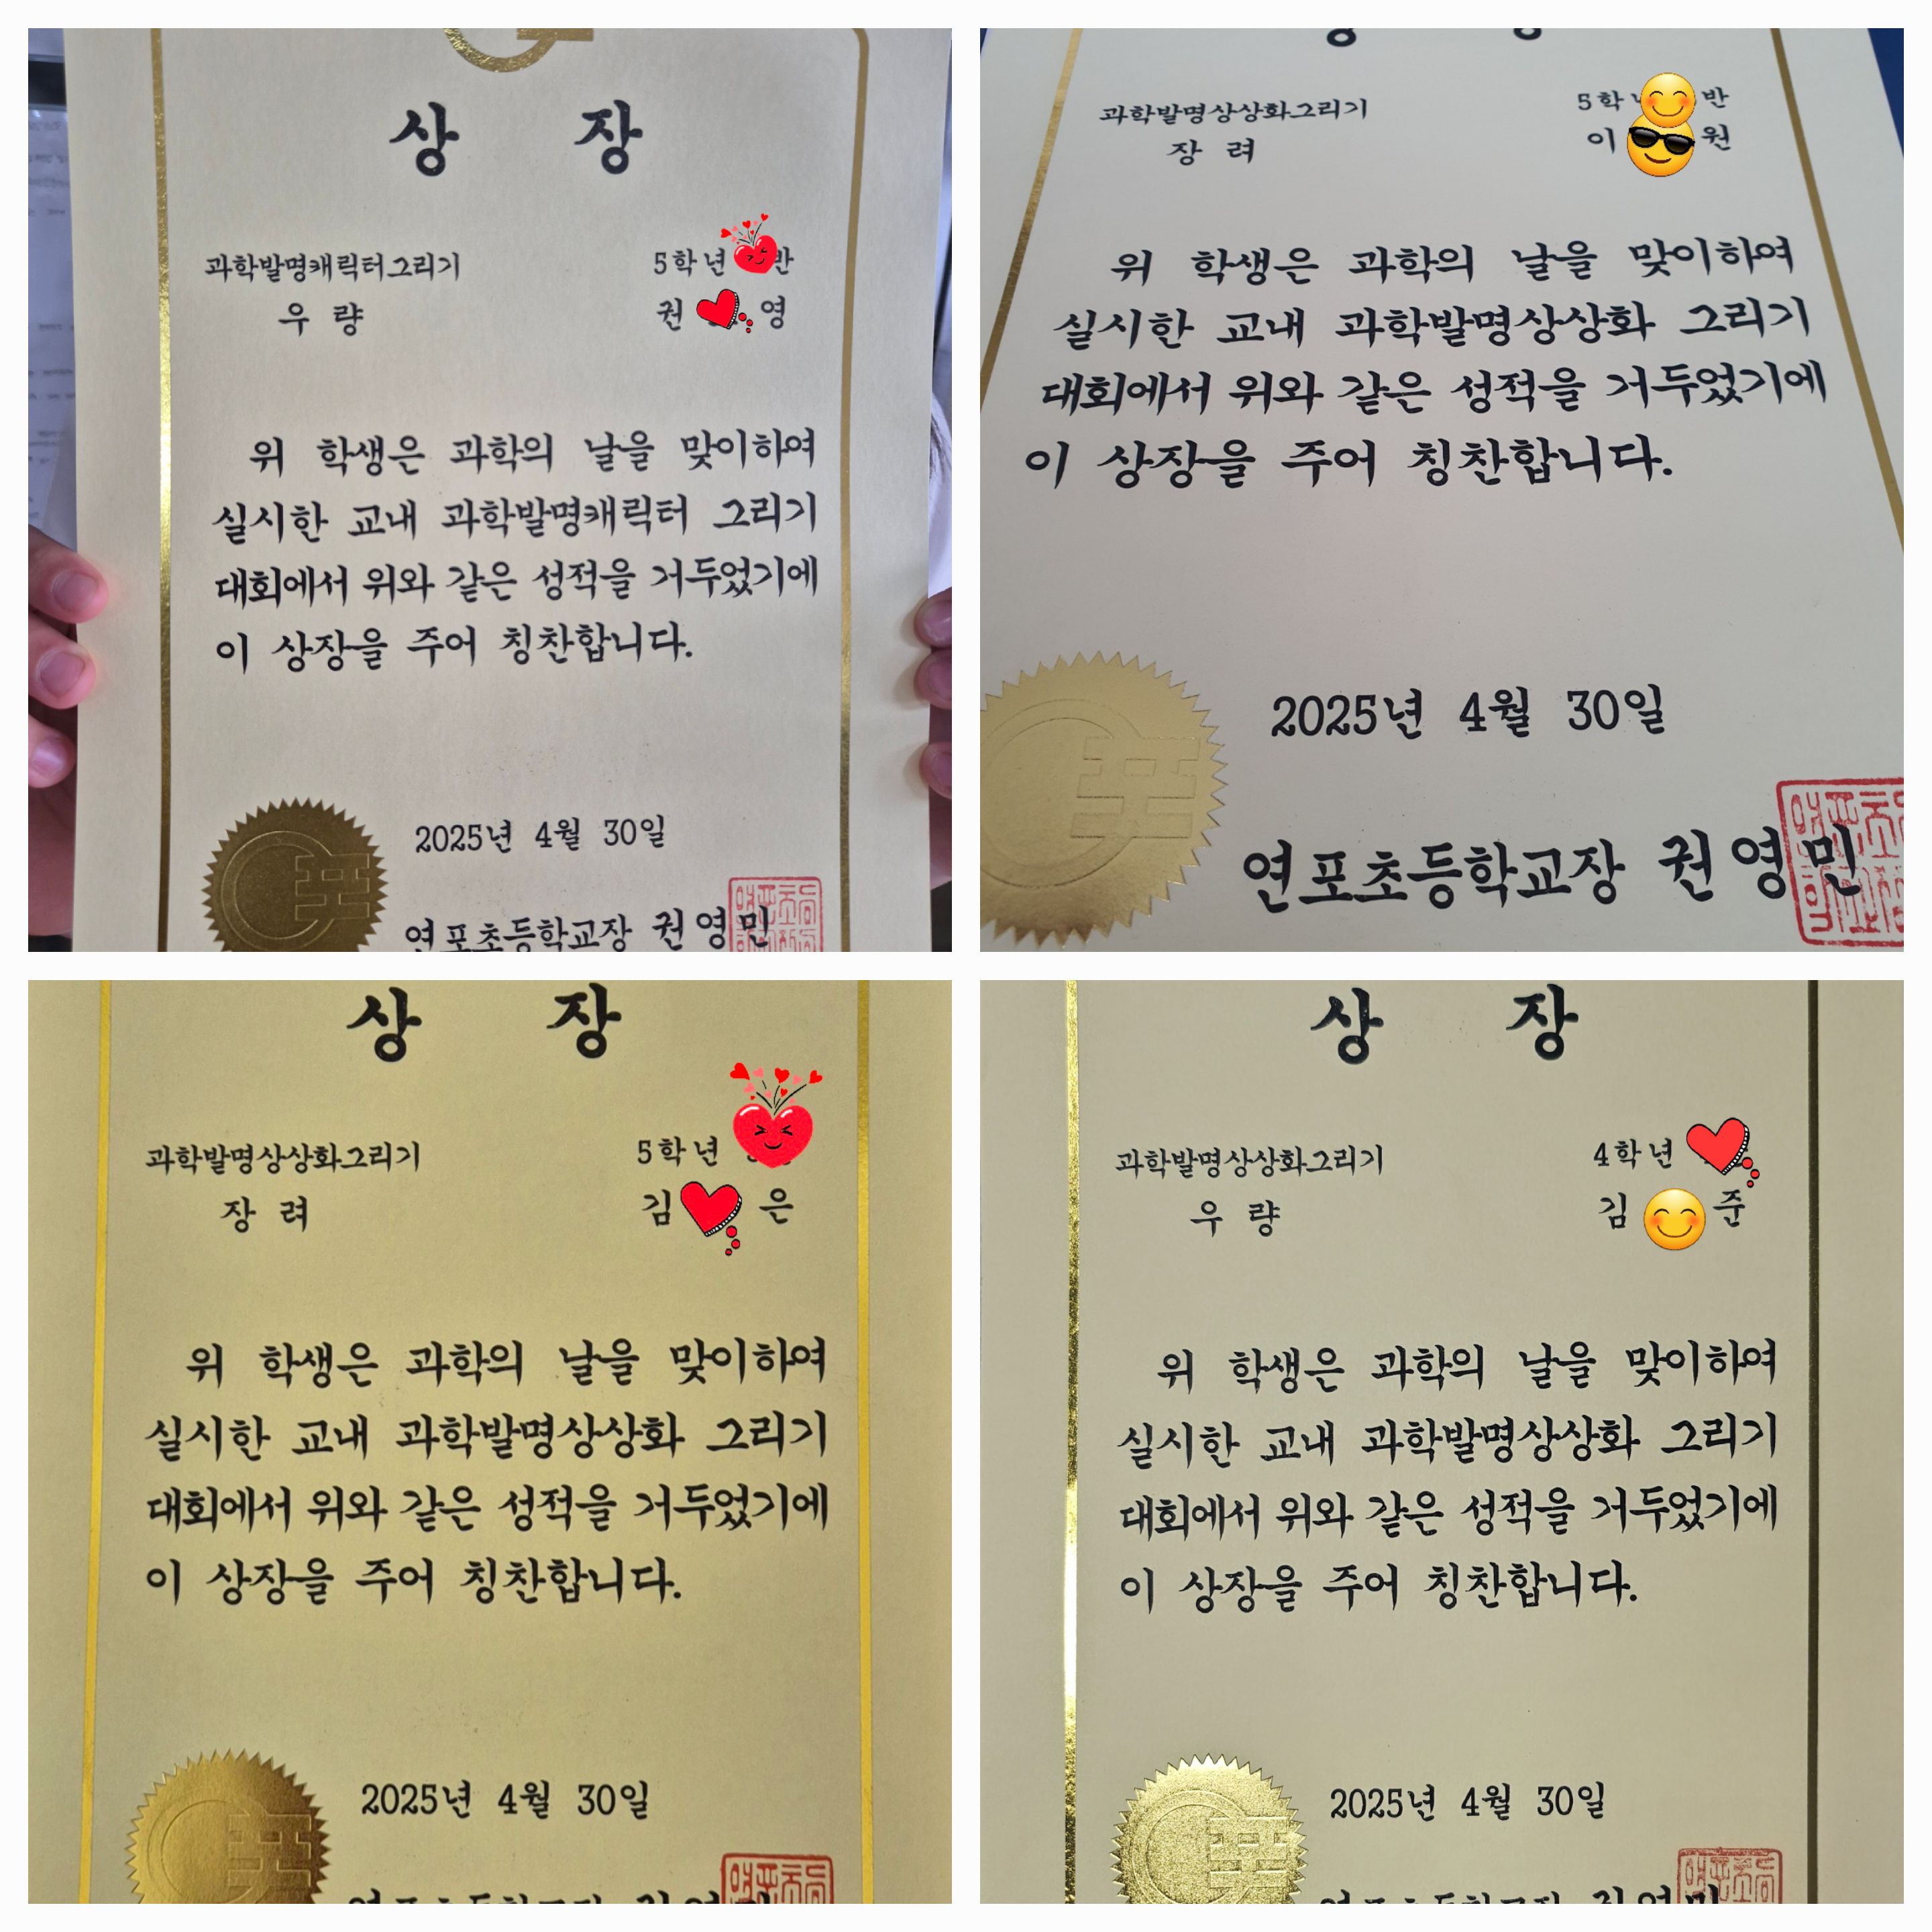 상 장
과학발명캐릭터그리기
우 량
5학년 반
권 영
위 학생은 과학의 날을 맞이하여
실시한 교내 과학발명캐릭터 그리기
대회에서 위와 같은 성적을 거두었기에
이 상장을 주어 칭찬합니다.
2025년 4월 30일
연포초등학교장 권영민
과학발명상상화그리기
장 려
5학 반
이 원
위 학생은 과학의 날을 맞이하여
실시한 교내 과학발명상상화 그리기
대회에서 위와 같은 성적을 거두었기에
이 상장을 주어 칭찬합니다.
2025년 4월 30일
연포초등학교장 권영민
상 장
과학발명상상화그리기
장 려
5학년
김 은
위 학생은 과학의 날을 맞이하여
실시한 교내 과학발명상상화 그리기
대회에서 위와 같은 성적을 거두었기에
이 상장을 주어 칭찬합니다.
2025년 4월 30일
상 장
과학발명상상화그리기
우 량
4학년
김 준
위 학생은 과학의 날을 맞이하여
실시한 교내 과학발명상상화 그리기
대회에서 위와 같은 성적을 거두었기에
이 상장을 주어 칭찬합니다.
2025년 4월 30일